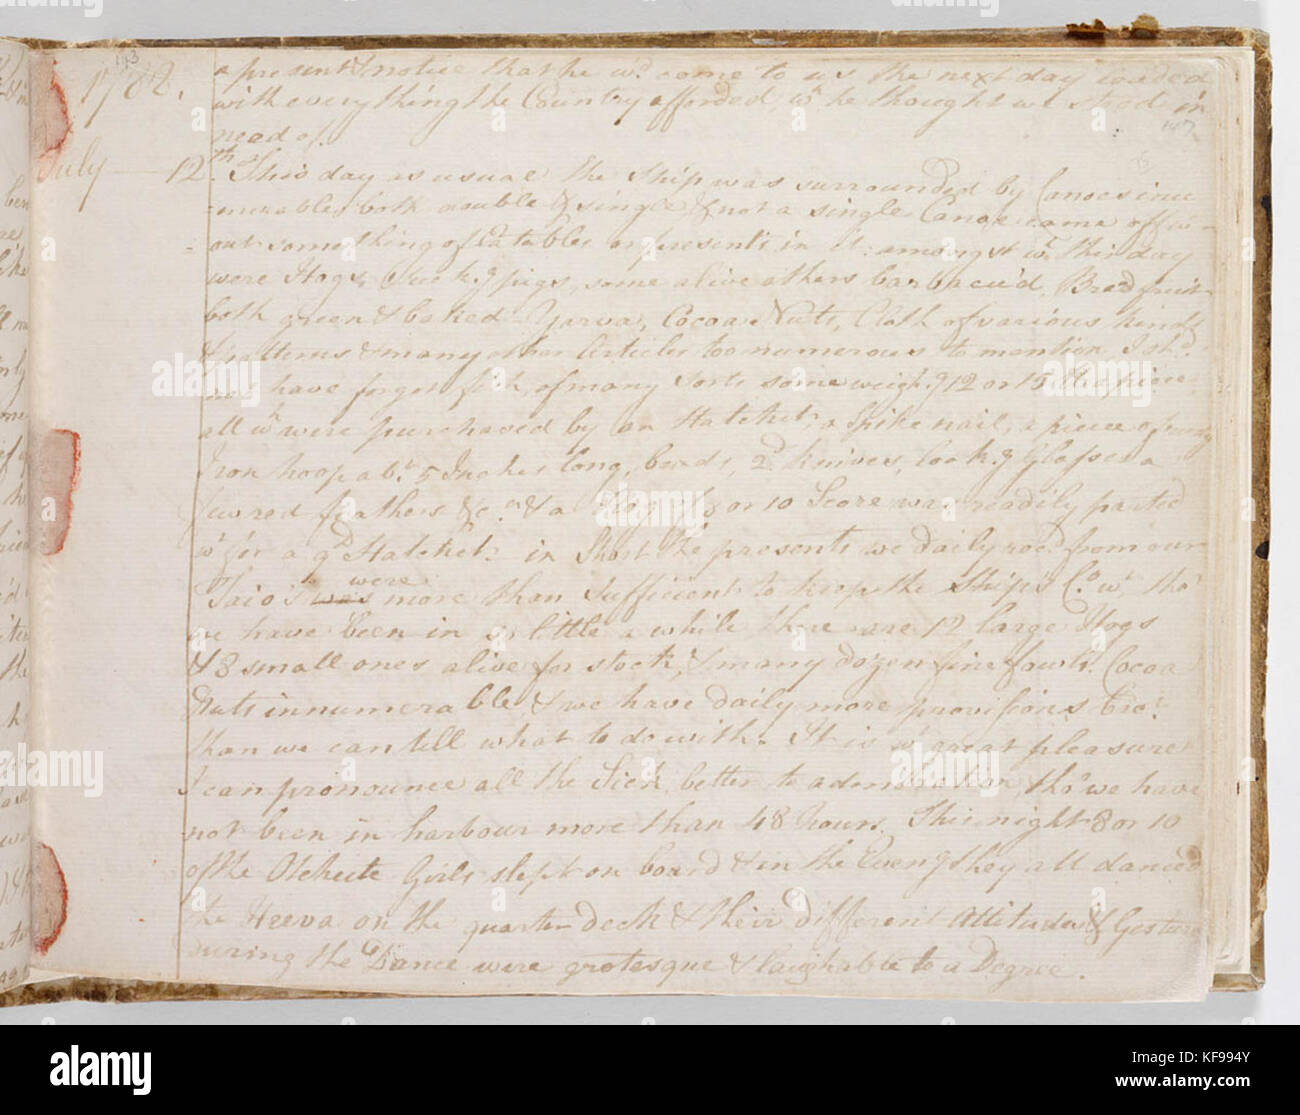 143
1788.
a present & notice that he wd. come to us the next day loaded
with everything the Country afforded, wh. he thought we stood in
need of.
147
July 12th. This day as usual the Ship was surrounded by Canoes innu
=merable, both double & single, & not a single Canoe came off wi=
=out something of Eatables or presents in it: amongst wh. this day
were Hogs, Suckg. pigs, some alive others barbacu'd, Bread fruit
both green & baked Yarva, Cocoa Nuts, Cloth of various kinds
& patterns & many other Articles too numerous to mention I shd.
not have forgot fish, of many sorts some weighg. 12 or 15 the piece
all wh. were purchased by an Hatchet, a Spike nail, a piece of
Iron hoop abt. 5 Inches long, beads 2d. knives, lookg. Glasses a
few red feathers &c. & a Hog of 8 or 10 Score was readily parted
wh. for a gd. Hatchet. in Short the presents we daily recd. from our
Taio's were more than Sufficient to keep the Ship's Co. wh. tho'
we have been in so little a while there are 12 large Hogs
& 8 small ones alive for stock, & many dozen fine fowls. Cocoa
Nuts innumerable & we have daily more provisions bro't.
than we can tell what to do with. It is wh. great pleasure
I can pronounce all the Sick better to admiration, tho' we have
not been in harbour more than 48 hours. This night 8 or 10
of the Oteheite Girls slept on board & in the Eveng. they all danced
the Heeva on the quarter deck & their different Attitudes & Gestures
during the Dance were grotesque & laughable to a Degree.
alamy
Image ID: KF994Y
www.alamy.com